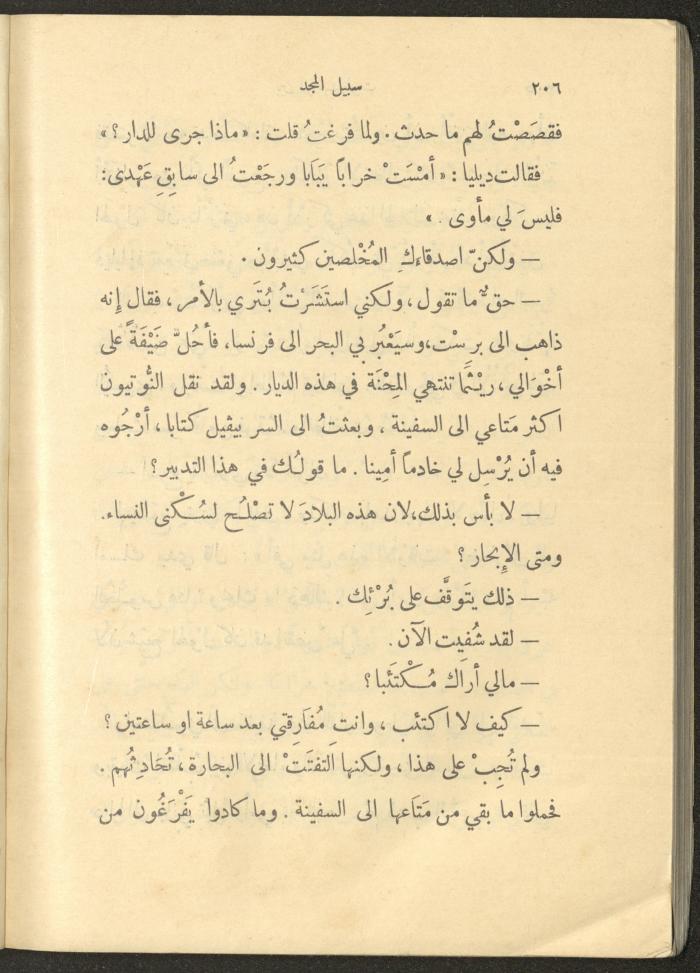 ٢٠٦ سبيل المجد
فقصَصْتُ لهم ما حدث. ولما فرغتُ قلت: «ماذا جرى للدار؟»
فقالت ديليا: «أمْسَتْ خراباً يَبَابا ورجَعْتُ الى سابقِ عَهْدى:
فليسَ لي مأوى.»
— ولكنّ اصدقاءكِ المُخْلصين كثيرون.
— حقٌّ ما تقول، ولكني استَشَرْتُ بُتَري بالأمر، فقال إنه
ذاهب الى برسْت، وسيَعْبُر بي البحر الى فرنسا، فأحُلّ ضَيْفَةً على
أخْوَالي، ريْثَما تنتهي المِحْنَة في هذه الديار. ولقد نقل النُّوتيون
اكثر مَتاعي الى السفينة، وبعثتُ الى السر بيڤيل كتابا، أرْجُوه
فيه أن يُرْسِل لي خادماً أمِينا. ما قولُك في هذا التدبير؟
— لا بأس بذلك، لان هذه البلادَ لا تصْلُح لسُكْنى النساء.
ومتى الإبحاز؟
— ذلك يَتوقَّف على بُرْئِك.
— لقد شُفِيت الآن.
— مالي أراك مُكْتَئبا؟
— كيف لا اكتئب، وانتِ مُفَارِقتي بعد ساعة او ساعتين؟
ولم تُجِبْ على هذا، ولكنها التفتَتْ الى البحارة، تُحَادِثُهم.
فحملوا ما بقي من مَتَاعها الى السفينة. وما كادوا يَفْرَغُون من